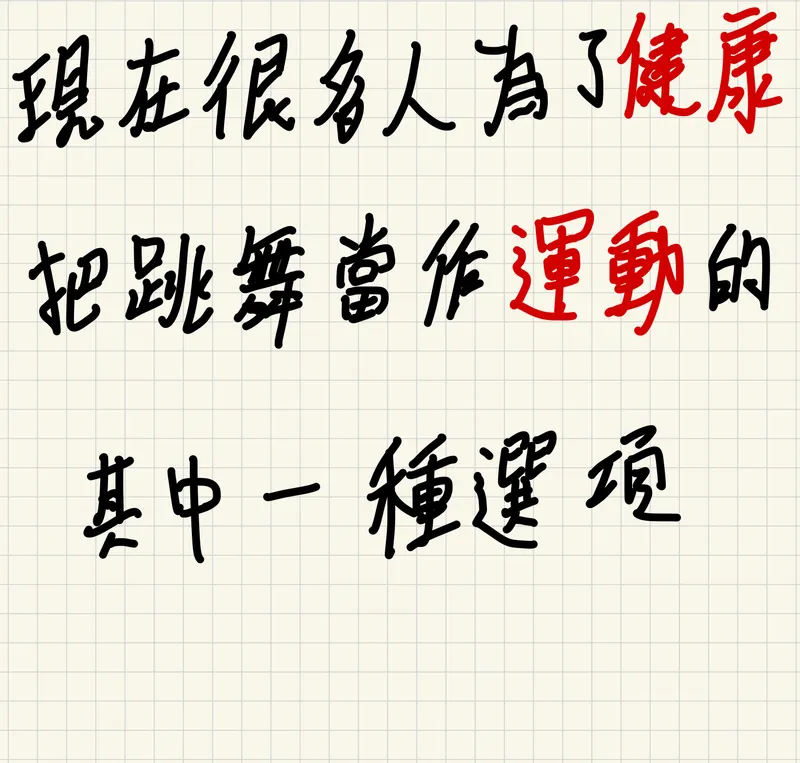 現在很多人為了健康
把跳舞當作運動的
其中一種選項